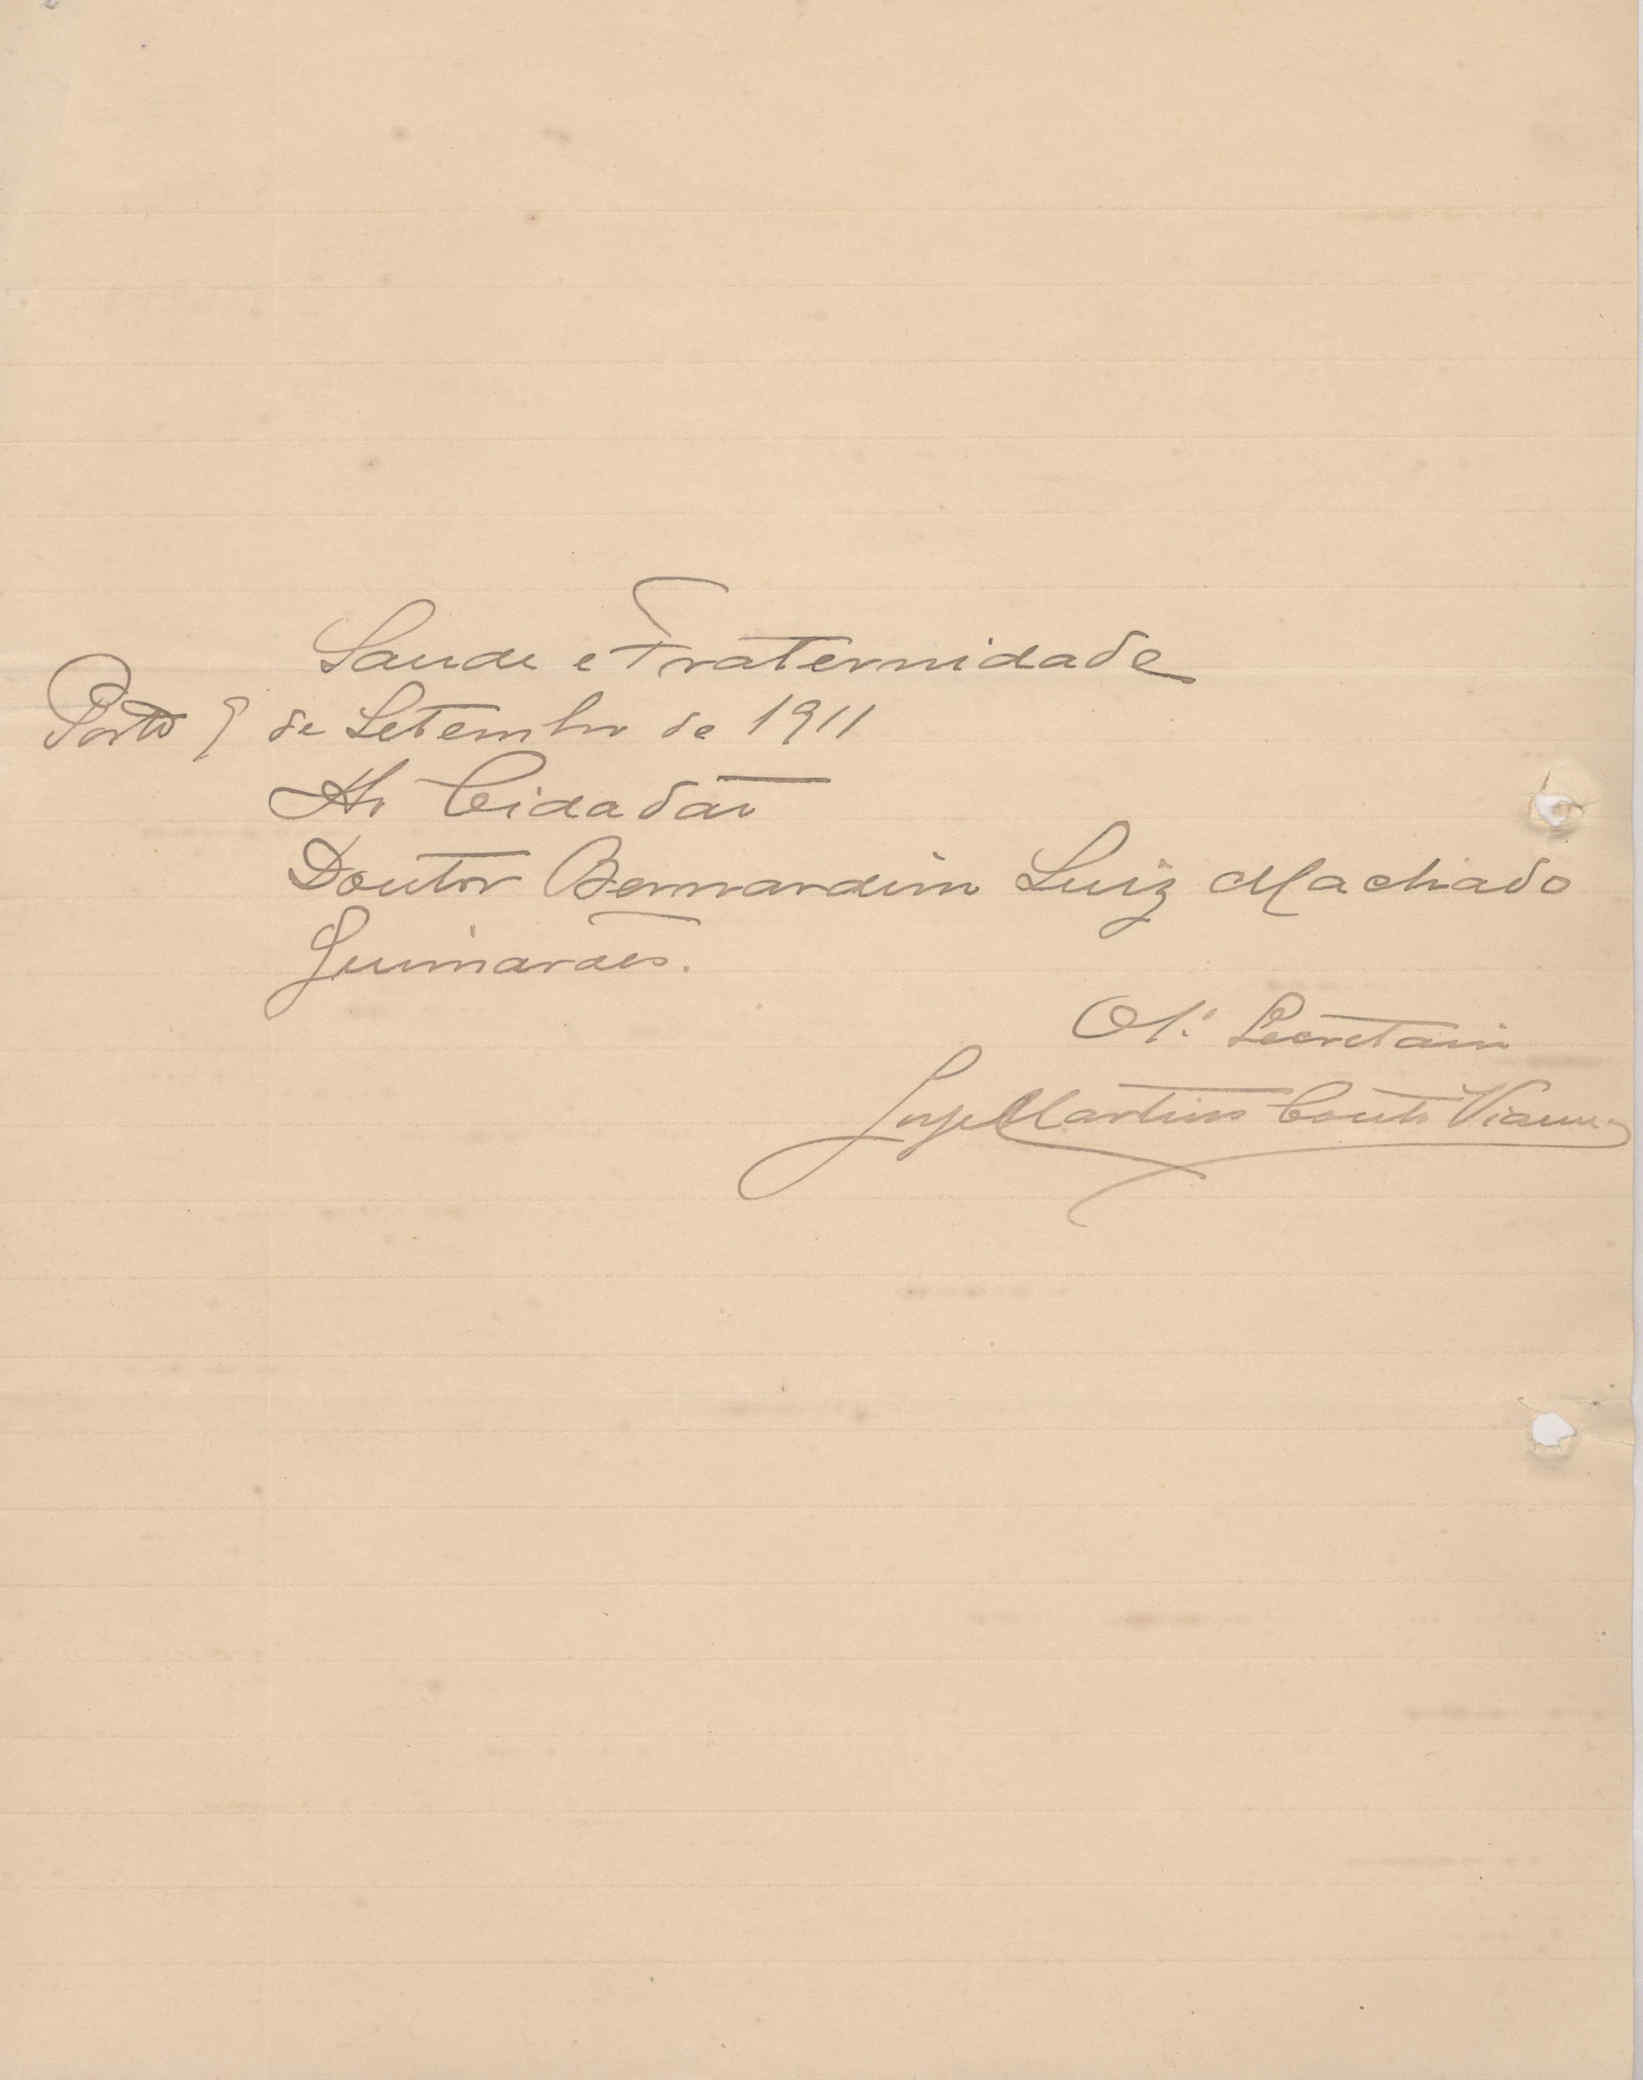 Saude e Fraternidade
Porto 9 de Setembro de 1911
Ao Cidadão
Doutor Bernardino Luiz Machado
Guimarães.
O 1.º Secretario
Jorge Martins Couto Vianna